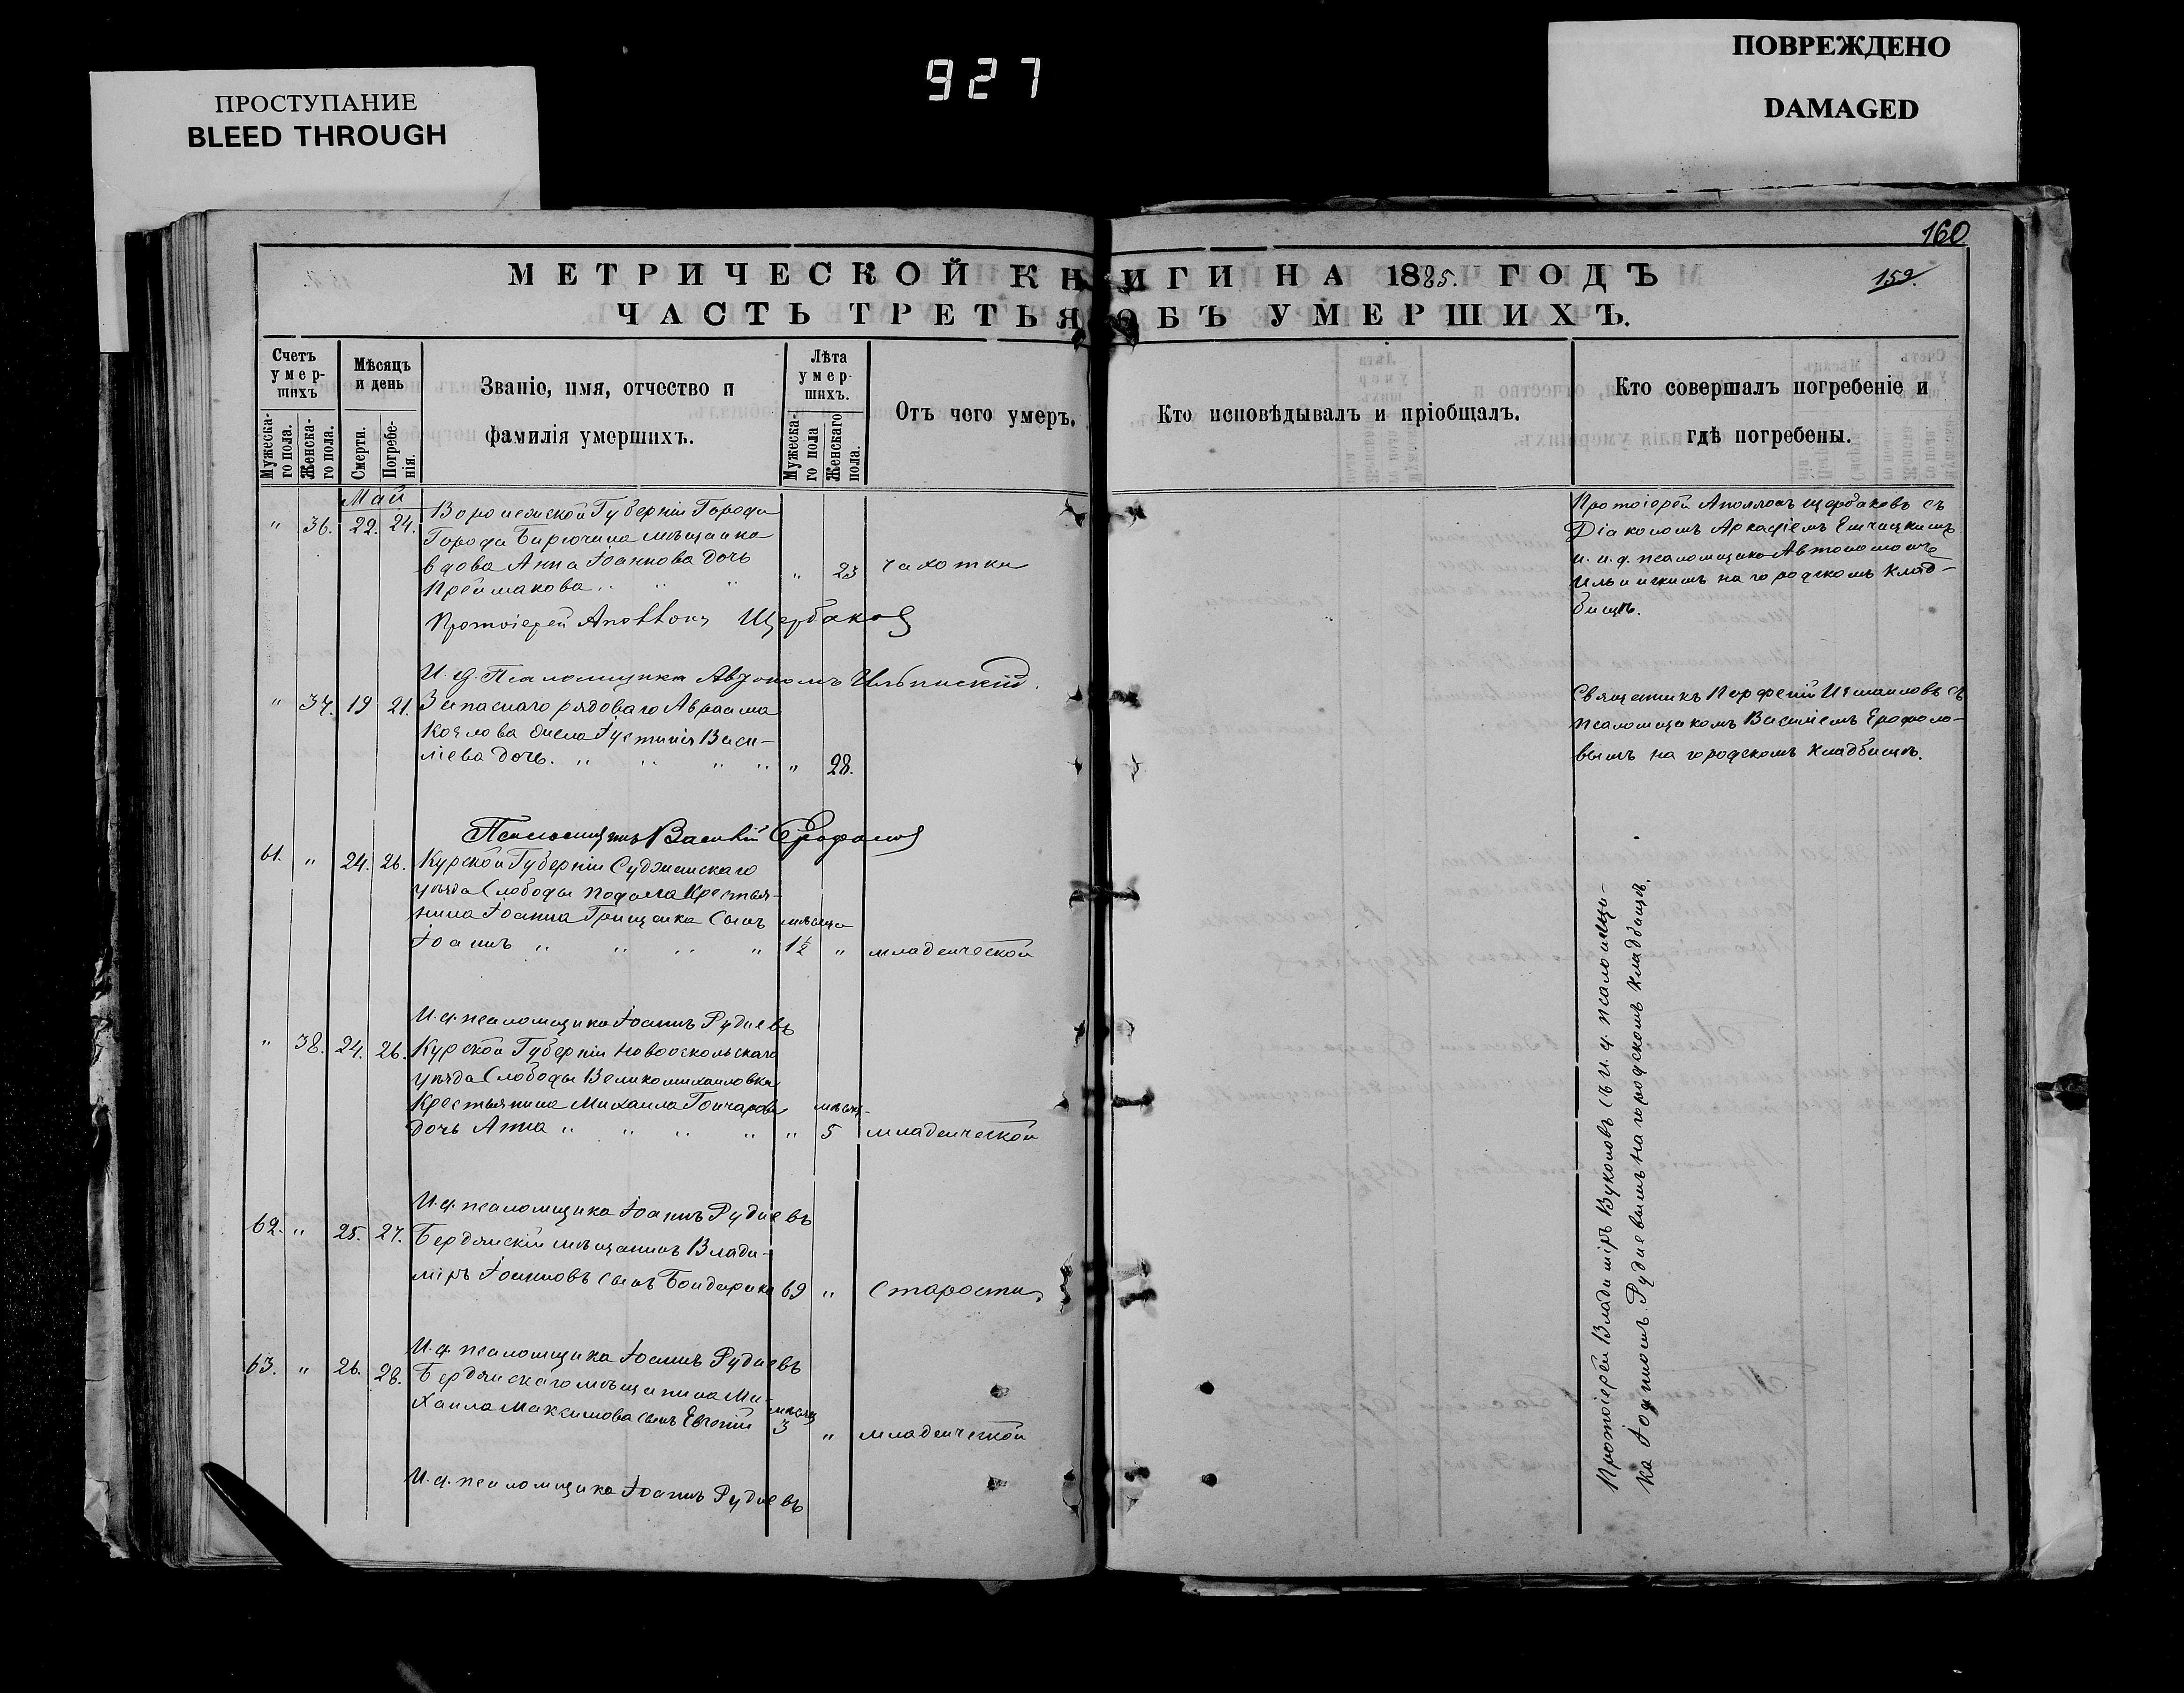 927
ПРОСТУПАНИЕ
BLEED THROUGH
ПОВРЕЖДЕНО
DAMAGED
160
159.
МЕТРИЧЕСКОЙ КНИГИ НА 1885. ГОДЪ
ЧАСТЬ ТРЕТЬЯ ОБЪ УМЕРШИХЪ.
Счетъ умер-шихъ
Мужеска-го пола.
Женска-го пола.
Мѣсяцъ и день
Смерти.
Погребе-нія.
Званіе, имя, отчество и
фамилія умершихъ.
Лѣта умер-шихъ.
Мужеска-го пола
Женскаго пола.
Отъ чего умеръ.
Кто исповѣдывалъ и пріобщалъ.
Кто совершалъ погребеніе и
гдѣ погребены.
Май
" 36. 22. 24. Воронежской Губерніи Города
Города Бирючина мѣщанка
вдова Анна Іоаннова дочь
" 23 Чахотки
Протоіерей Аполлонъ Щербаковъ
И. д. Псаломщика Автономъ Ильинскій.
Протоіерей Аполлонъ Щербаковъ съ
Діакономъ Аркадіемъ
и. и. д. псаломщика Автономомъ
Ильинскимъ на городскомъ клад-
бищѣ.
" 37. 19 21. Запаснаго рядоваго Авраама
Козлова жена Іустинія Васи-
ліева дочь. " " " " " 28.
Псаломщикъ Василій Ерофаловъ
Священникъ Парфеній Измаиловъ съ
псаломщикомъ Василіемъ Ерофало-
вымъ на городскомъ кладбищѣ.
61. " 24. 26. Курской Губерніи Суджанскаго
уѣзда Слободы Подола Крестья-
нина Іоанна Грищенка сынъ мѣсяца
Іоаннъ " " " " 1½ " младенческой
И. д. псаломщика Іоаннъ Рудневъ
" 38. 24. 26. Курской Губерніи Новооскольскаго
уѣзда Слободы Великомихаиловки
Крестьянина Михаила Гончарова мѣсяц-
дочь Анна " " " " " 5 младенческой
И. д. псаломщика Іоаннъ Рудневъ
62. " 25. 27. Бердянскій мѣщанинъ Влади-
міръ Іоанновъ сынъ Бондаренко 69 " Старости
И. д. псаломщика Іоаннъ Рудневъ
63. " 26. 28. Бердянскаго мѣщанина Ми-
хаила Максимова сынъ Евгеній мѣсяц 3 " младенческой
И. д. псаломщика Іоаннъ Рудневъ
Протоіерей Владиміръ Вуколовъ съ и. д. псаломщи-
ка Іоанномъ Рудневымъ на городскомъ кладбищѣ.